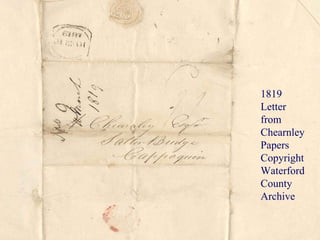 1819
Chearnley Esqr
Salter Bridge
Cappoquin
1819
Letter
from
Chearnley
Papers
Copyright
Waterford
County
Archive